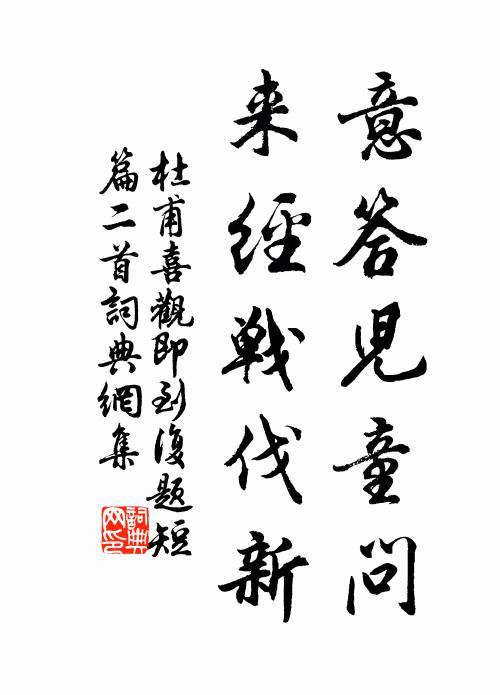 意答児童問
来經戦伐新
杜甫喜觀即到復題短
篇二首詞典網集
詞典
网印